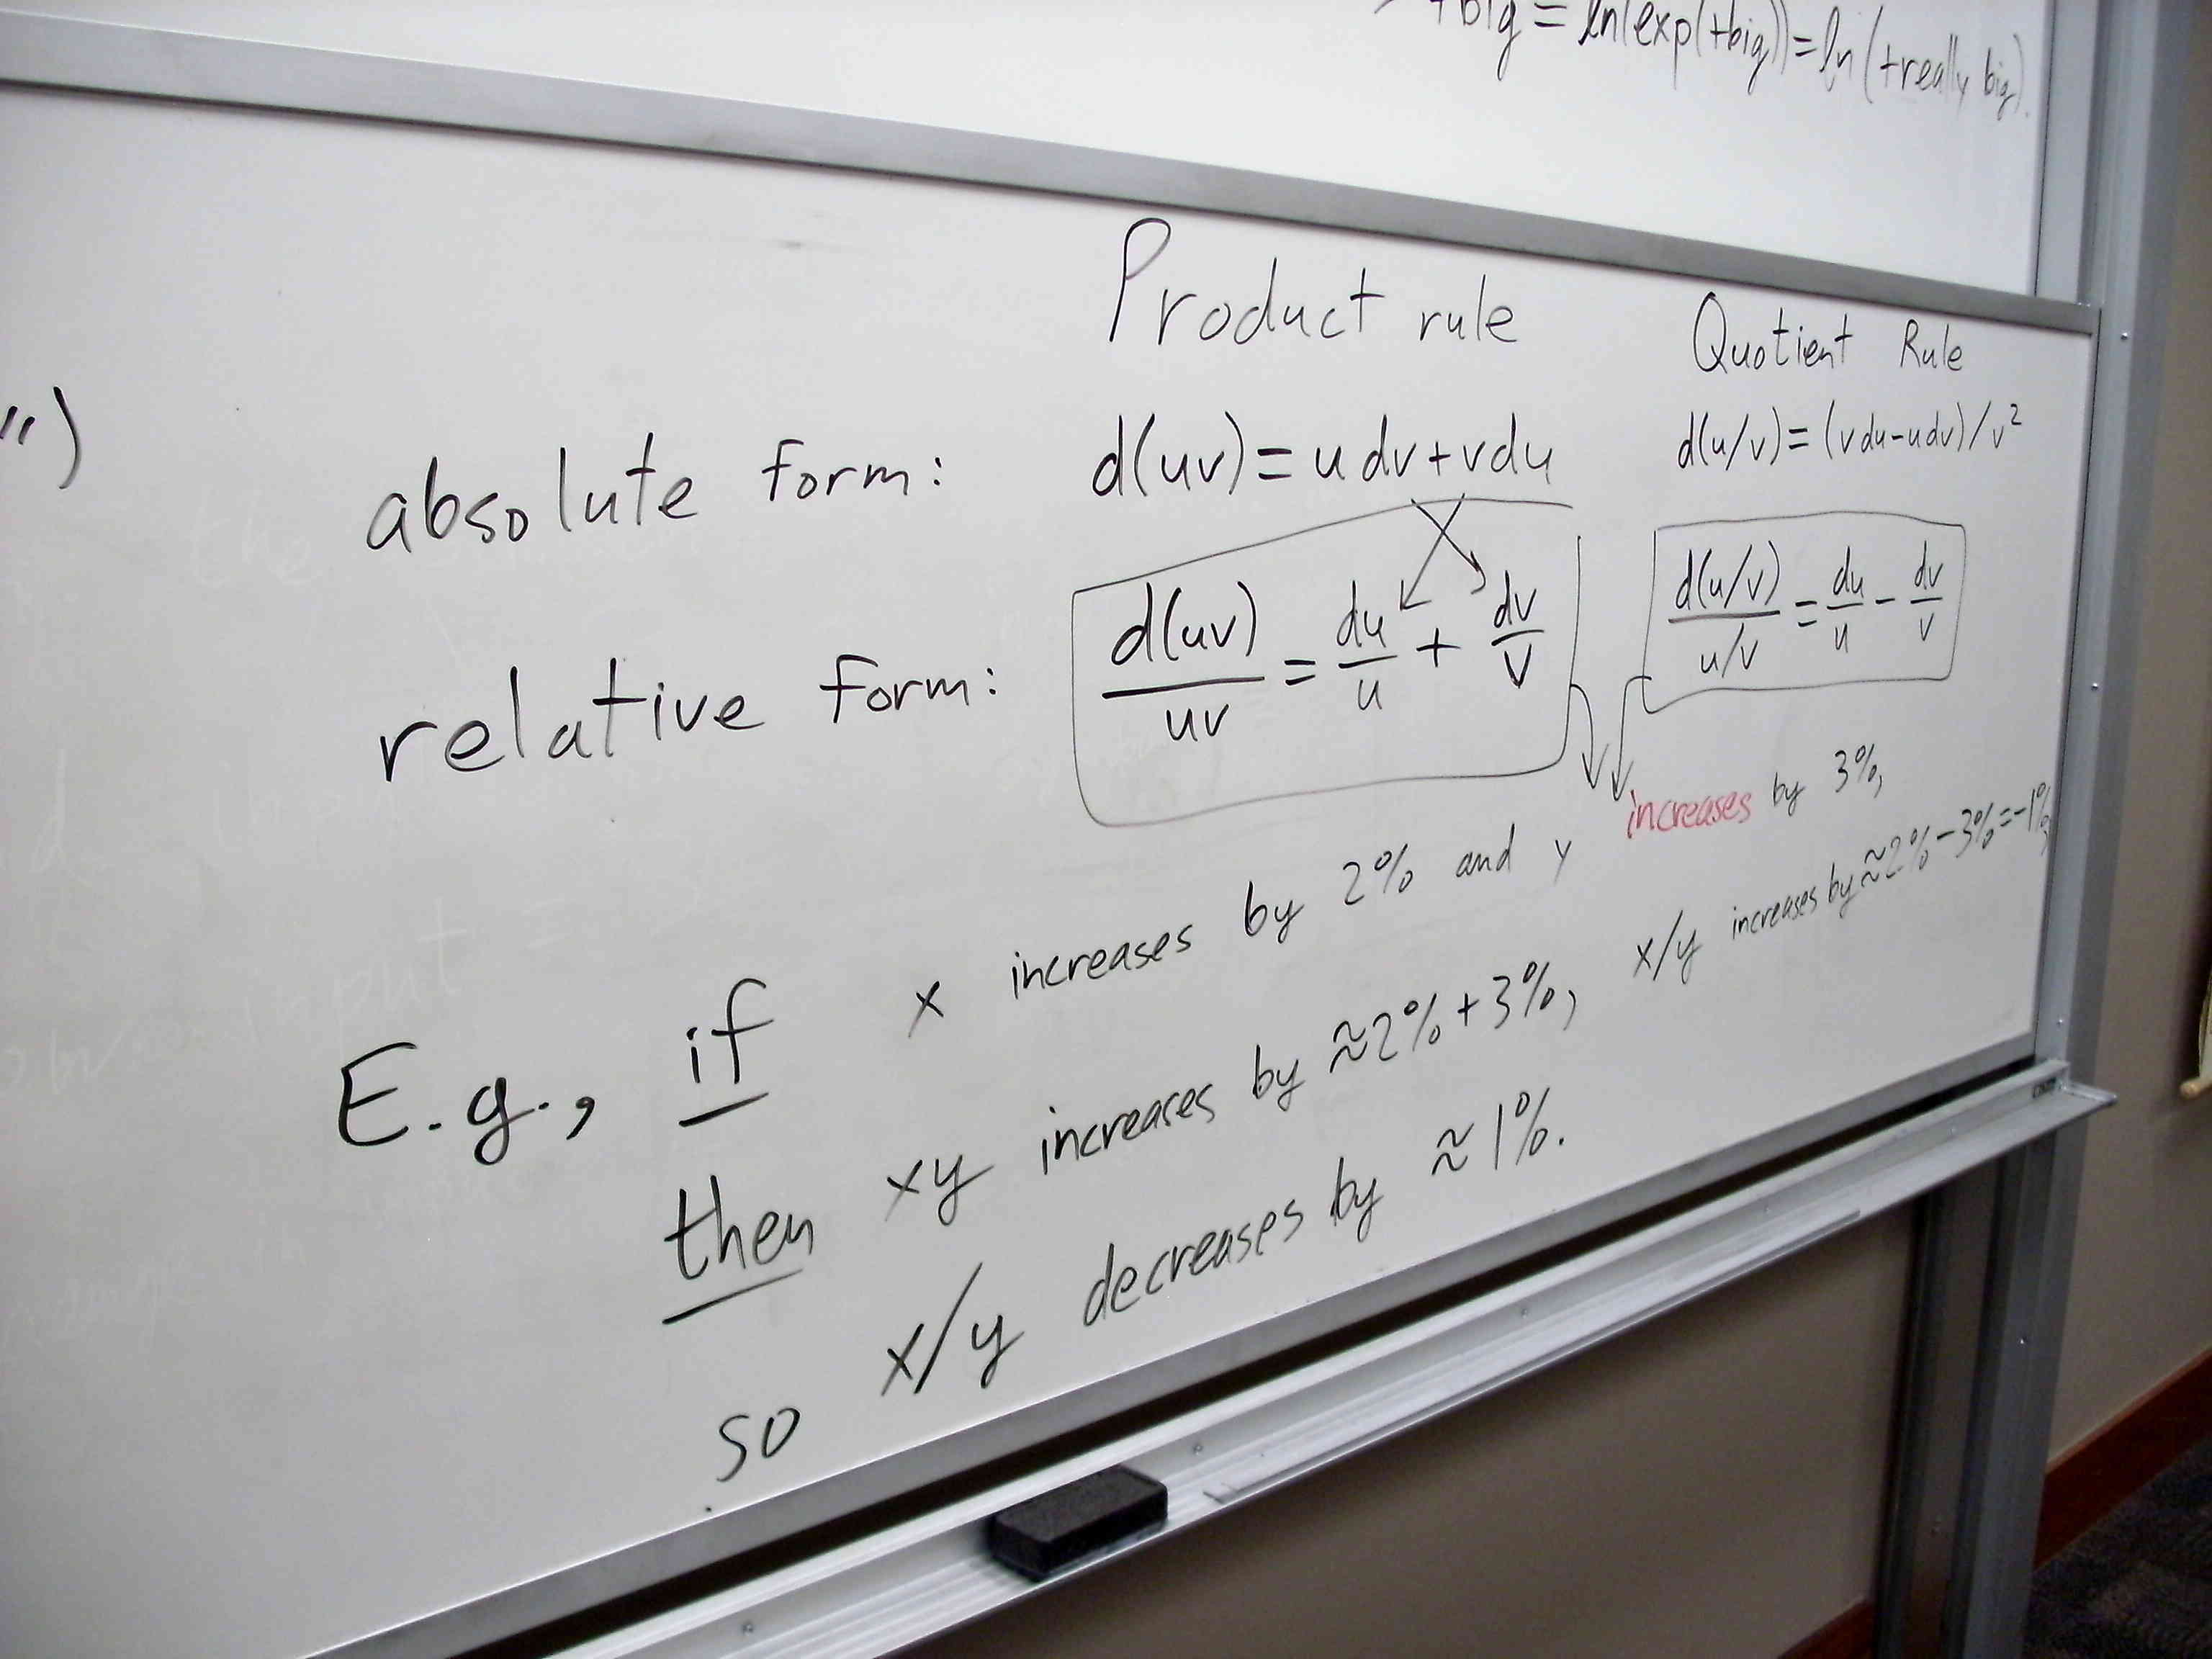 +big = ln(exp(+big)) = ln(+really big).
Product rule
Quotient Rule
")
absolute form: d(uv) = u dv + v du
d(u/v) = (v du - u dv)/v²
relative form: d(uv)/uv = du/u + dv/v
d(u/v)/(u/v) = du/u - dv/v
E.g., if x increases by 2% and y increases by 3%,
then xy increases by ≈2% + 3%, x/y increases by ≈2% - 3% = -1%,
so x/y decreases by ≈1%.